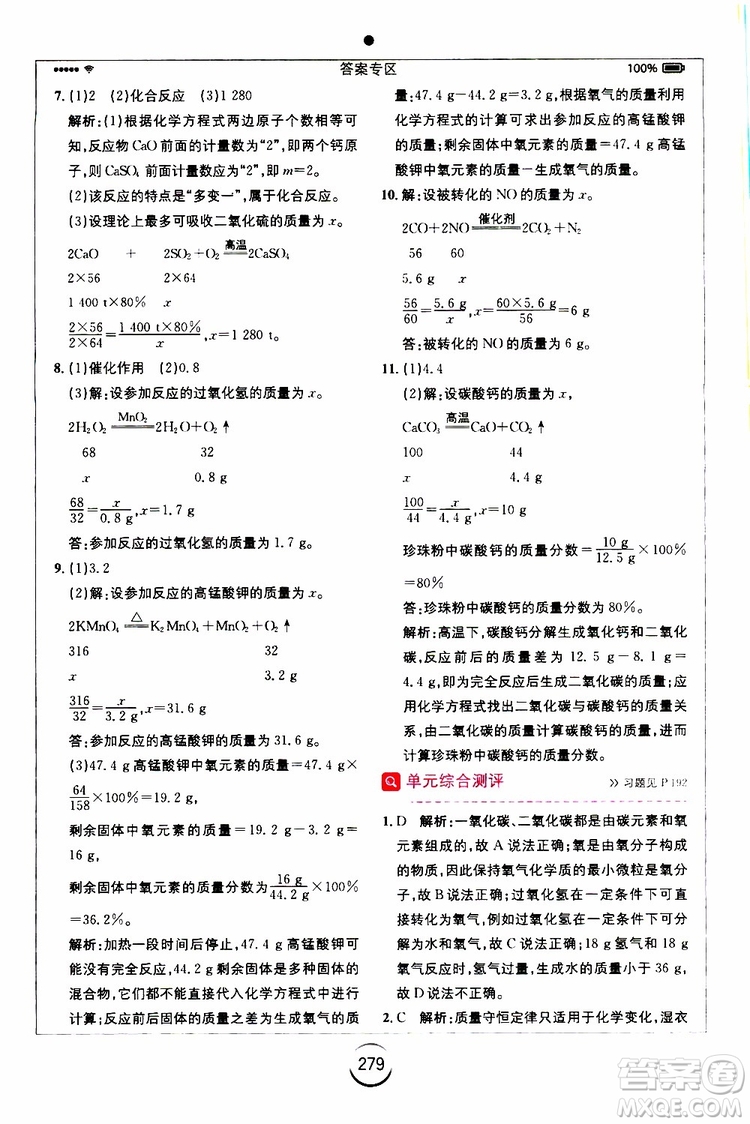 答案专区
100%
7. (1)2 (2)化合反应 (3)1 280
解析:(1)根据化学方程式两边原子个数相等可
知,反应物 CaO 前面的计量数为“2”,即两个钙原
子,则 CaSO₄ 前面计量数为“2”,即 m=2。
(2)该反应的特点是“多变一”,属于化合反应。
(3)设理论上最多可吸收二氧化硫的质量为 x。
2CaO + 2SO₂+O₂ 高温═ 2CaSO₄
2×56 2×64
1 400 t×80% x
2×56/2×64=1 400 t×80%/x,x=1 280 t。
8. (1)催化作用 (2)0.8
(3)解:设参加反应的过氧化氢的质量为 x。
2H₂O₂ MnO₂═ 2H₂O+O₂↑
68 32
x 0.8 g
68/32=x/0.8 g,x=1.7 g
答:参加反应的过氧化氢的质量为 1.7 g。
9. (1)3.2
(2)解:设参加反应的高锰酸钾的质量为 x。
2KMnO₄ △═ K₂MnO₄+MnO₂+O₂↑
316 32
x 3.2 g
316/32=x/3.2 g,x=31.6 g
答:参加反应的高锰酸钾的质量为 31.6 g。
(3)47.4 g 高锰酸钾中氧元素的质量=47.4 g×
64/158×100%=19.2 g
剩余固体中氧元素的质量=19.2 g-3.2 g=
16 g,
剩余固体中氧元素的质量分数=16 g/44.2 g×100%
=36.2%。
解析:加热一段时间后停止,47.4 g 高锰酸钾可
能没有完全反应,44.2 g 剩余固体是多种固体的
混合物,它们不能直接代入化学方程式中进行
计算;反应前后固体的质量之差为生成氧气的质
量:47.4 g-44.2 g=3.2 g,根据氧气的质量利用
化学方程式的计算可求出参加反应的高锰酸钾
的质量。剩余固体中氧元素的质量=47.4 g 高锰
酸钾中氧元素的质量-生成氧气的质量。
10. 解:设被转化的 NO 的质量为 x。
2CO+2NO 催化剂═ 2CO₂+N₂
56 60
5.6 g x
56/60=5.6 g/x,x=60×5.6 g/56=6 g。
答:被转化的 NO 的质量为 6 g。
11. (1)4.4
(2)解:设碳酸钙的质量为 x,
CaCO₃ 高温═ CaO+CO₂↑
100 44
x 4.4 g
100/44=x/4.4 g,x=10 g
珍珠粉中碳酸钙的质量分数=10 g/12.5 g×100%
=80%
答:珍珠粉中碳酸钙的质量分数为 80%。
解析:高温下,碳酸钙分解生成氧化钙和二氧化
碳,反应前后的质量差为 12.5 g-8.1 g=
4.4 g,即为完全反应后生成二氧化碳的质量;应
用化学方程式找出二氧化碳与碳酸钙的质量
关系,由二氧化碳的质量计算碳酸钙的质量,进而
计算珍珠粉中碳酸钙的质量分数。
单元综合测评 》习题见 P192
1. D 解析:一氧化碳、二氧化碳都是由碳元素和氧
元素组成的,故 A 说法正确;氧气是由氧分子构成
的物质,因此保持氧气化学性质的最小微粒是氧分
子,故 B 说法正确;过氧化氢在一定条件下可以
转化为氧气,例如过氧化氢在一定条件下可分解
为水和氧气,故 C 说法正确;18 g 氢气和 18 g 氧
气的混合气体,充分反应后,生成水的质量小于 36 g,
故 D 说法不正确。
2. C 解析:质量守恒定律只适用于化学变化,湿衣
279
答案圈
MXQE.COM